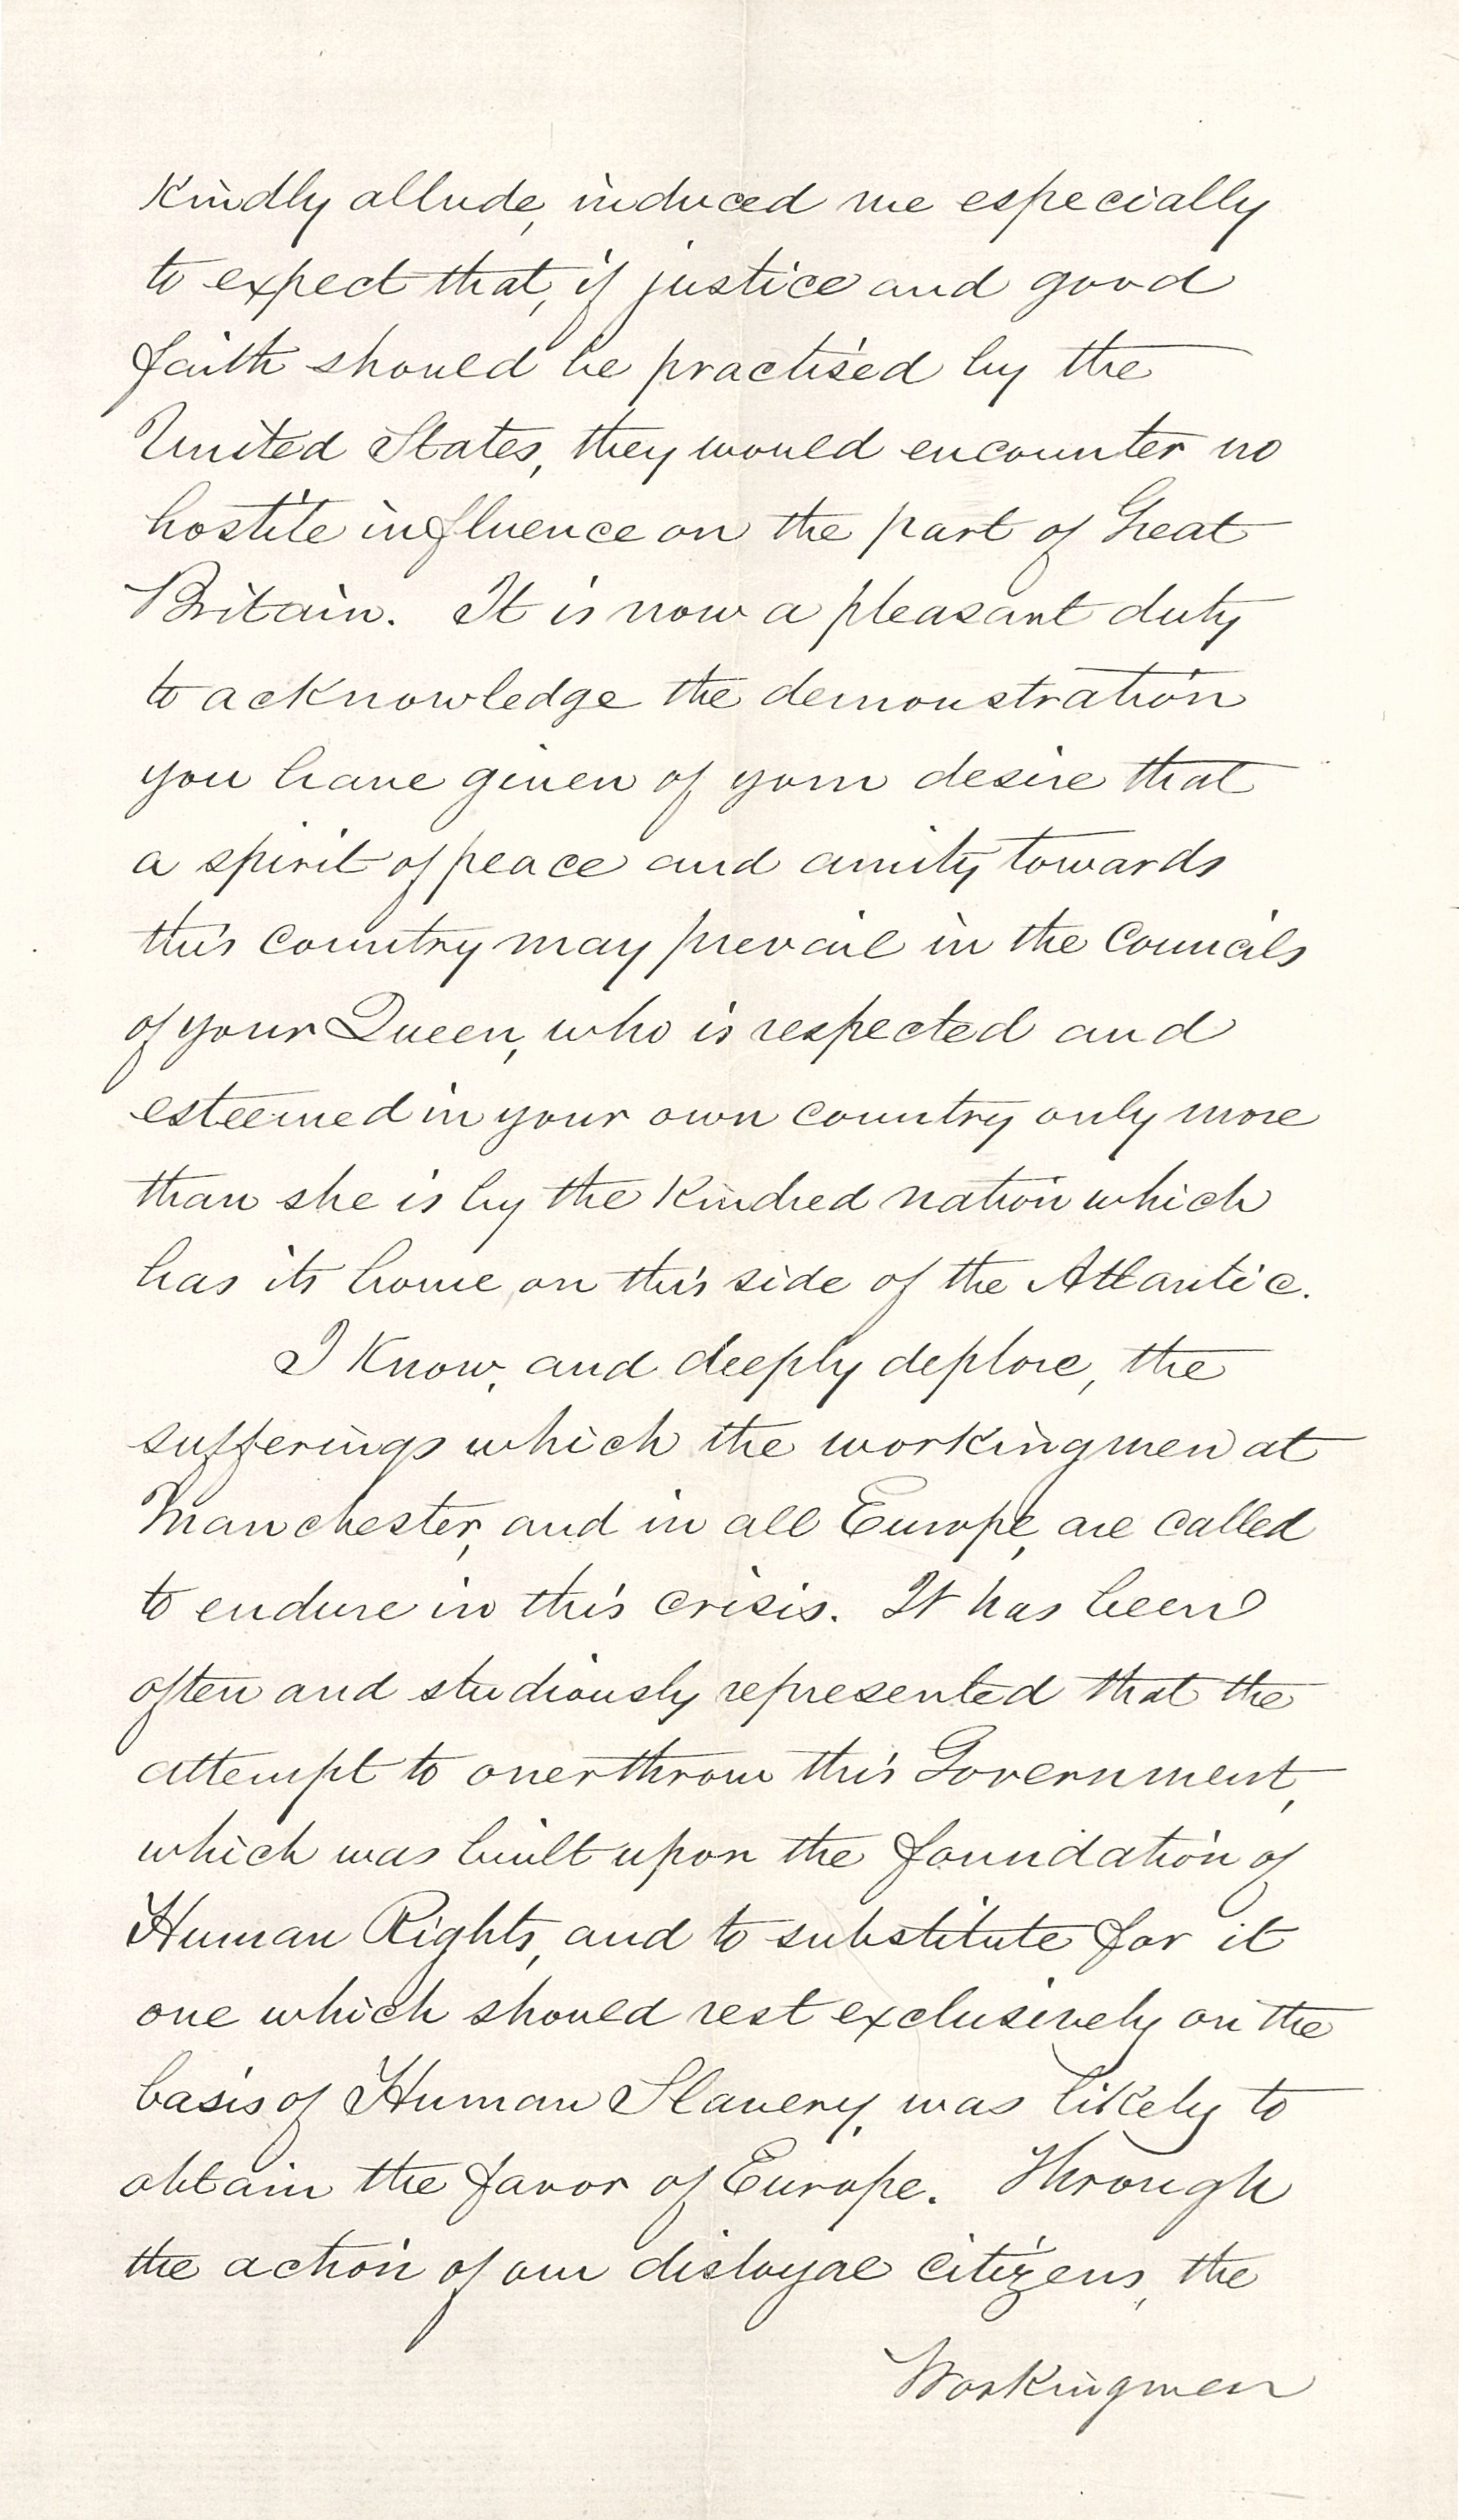 Kindly allude, induced me especially
to expect that, if justice and good
faith should be practised by the
United States, they would encounter no
hostile influence on the part of Great
Britain. It is now a pleasant duty
to acknowledge the demonstration
you have given of your desire that
a spirit of peace and amity towards
this country may prevail in the Councils
of your Queen, who is respected and
esteemed in your own country only more
than she is by the Kindred nation which
has its home on this side of the Atlantic.
I Know, and deeply deplore, the
sufferings which the workingmen at
Manchester, and in all Europe, are called
to endure in this crisis. It has been
often and studiously represented that the
attempt to overthrow this Government,
which was built upon the foundation of
Human Rights, and to substitute for it
one which should rest exclusively on the
basis of Human Slavery, was likely to
obtain the favor of Europe. Through
the action of our disloyal citizens, the
Workingmen